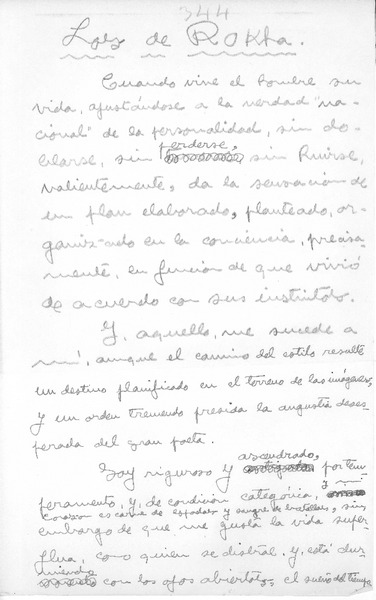 344
Los de ROKHA.
Cuando vive el hombre su
vida, ajustándose a la verdad "na-
cional" de la personalidad, sin do-
blarse, sin perderse, sin huirse,
valientemente, da la sensación de
un plan elaborado, planteado, or-
ganizado en la conciencia, precisa-
mente, en función de que vivió
de acuerdo con sus instintos.
Y, aquello, me sucede a
mí, aunque el camino del estilo resulte
un destino planificado en el terreno de las imágenes,
y un orden tremendo presida la angustia deses-
perada del gran poeta.
Soy riguroso y ascendrado, por tem-
peramento, y, de condición categórica, y mi
corazón es carne de espadas y sangre de batallas, sin
embargo de que me gusta la vida super-
flua, como quien se distrae y está dur-
miendo con los ojos abiertos, el sueño del tiempo